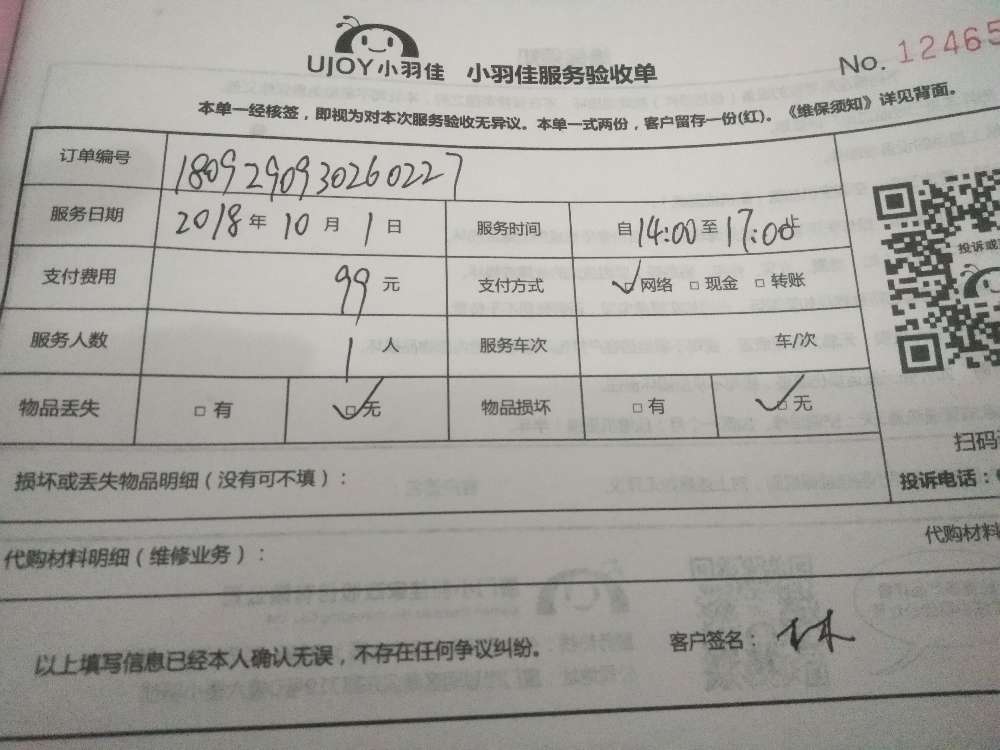 UJOY小羽佳 小羽佳服务验收单
No. 12465
本单一经核签，即视为对本次服务验收无异议。本单一式两份，客户留存一份(红)。《维保须知》详见背面。
订单编号 180929093026 0227
服务日期 2018 年 10 月 1 日 服务时间 自 14:00 至 17:00 止
支付费用 99 元 支付方式 ☑网络 □现金 □转账
服务人数 1 人 服务车次 车/次
物品丢失 □有 ☑无 物品损坏 □有 ☑无
投诉或
扫码
损坏或丢失物品明细（没有可不填）：
投诉电话：
代购材料明细（维修业务）：
代购材料
以上填写信息已经本人确认无误，不存在任何争议纠纷。 客户签名： 林